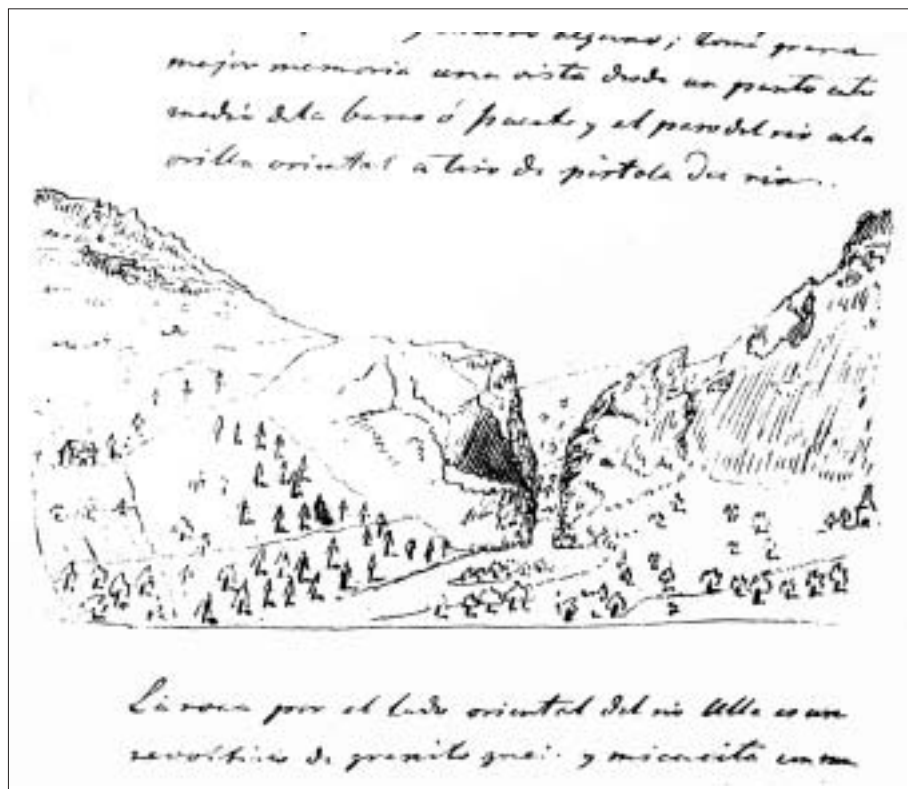 alguno; tomé para
mejor memoria una vista desde un punto
media de la barca ó puente y el paso del rio a la
orilla oriental a tiro de pistola del rio.
La roca por el lado oriental del rio Ulla es un
revoltisio de granito gnei. y micacita con